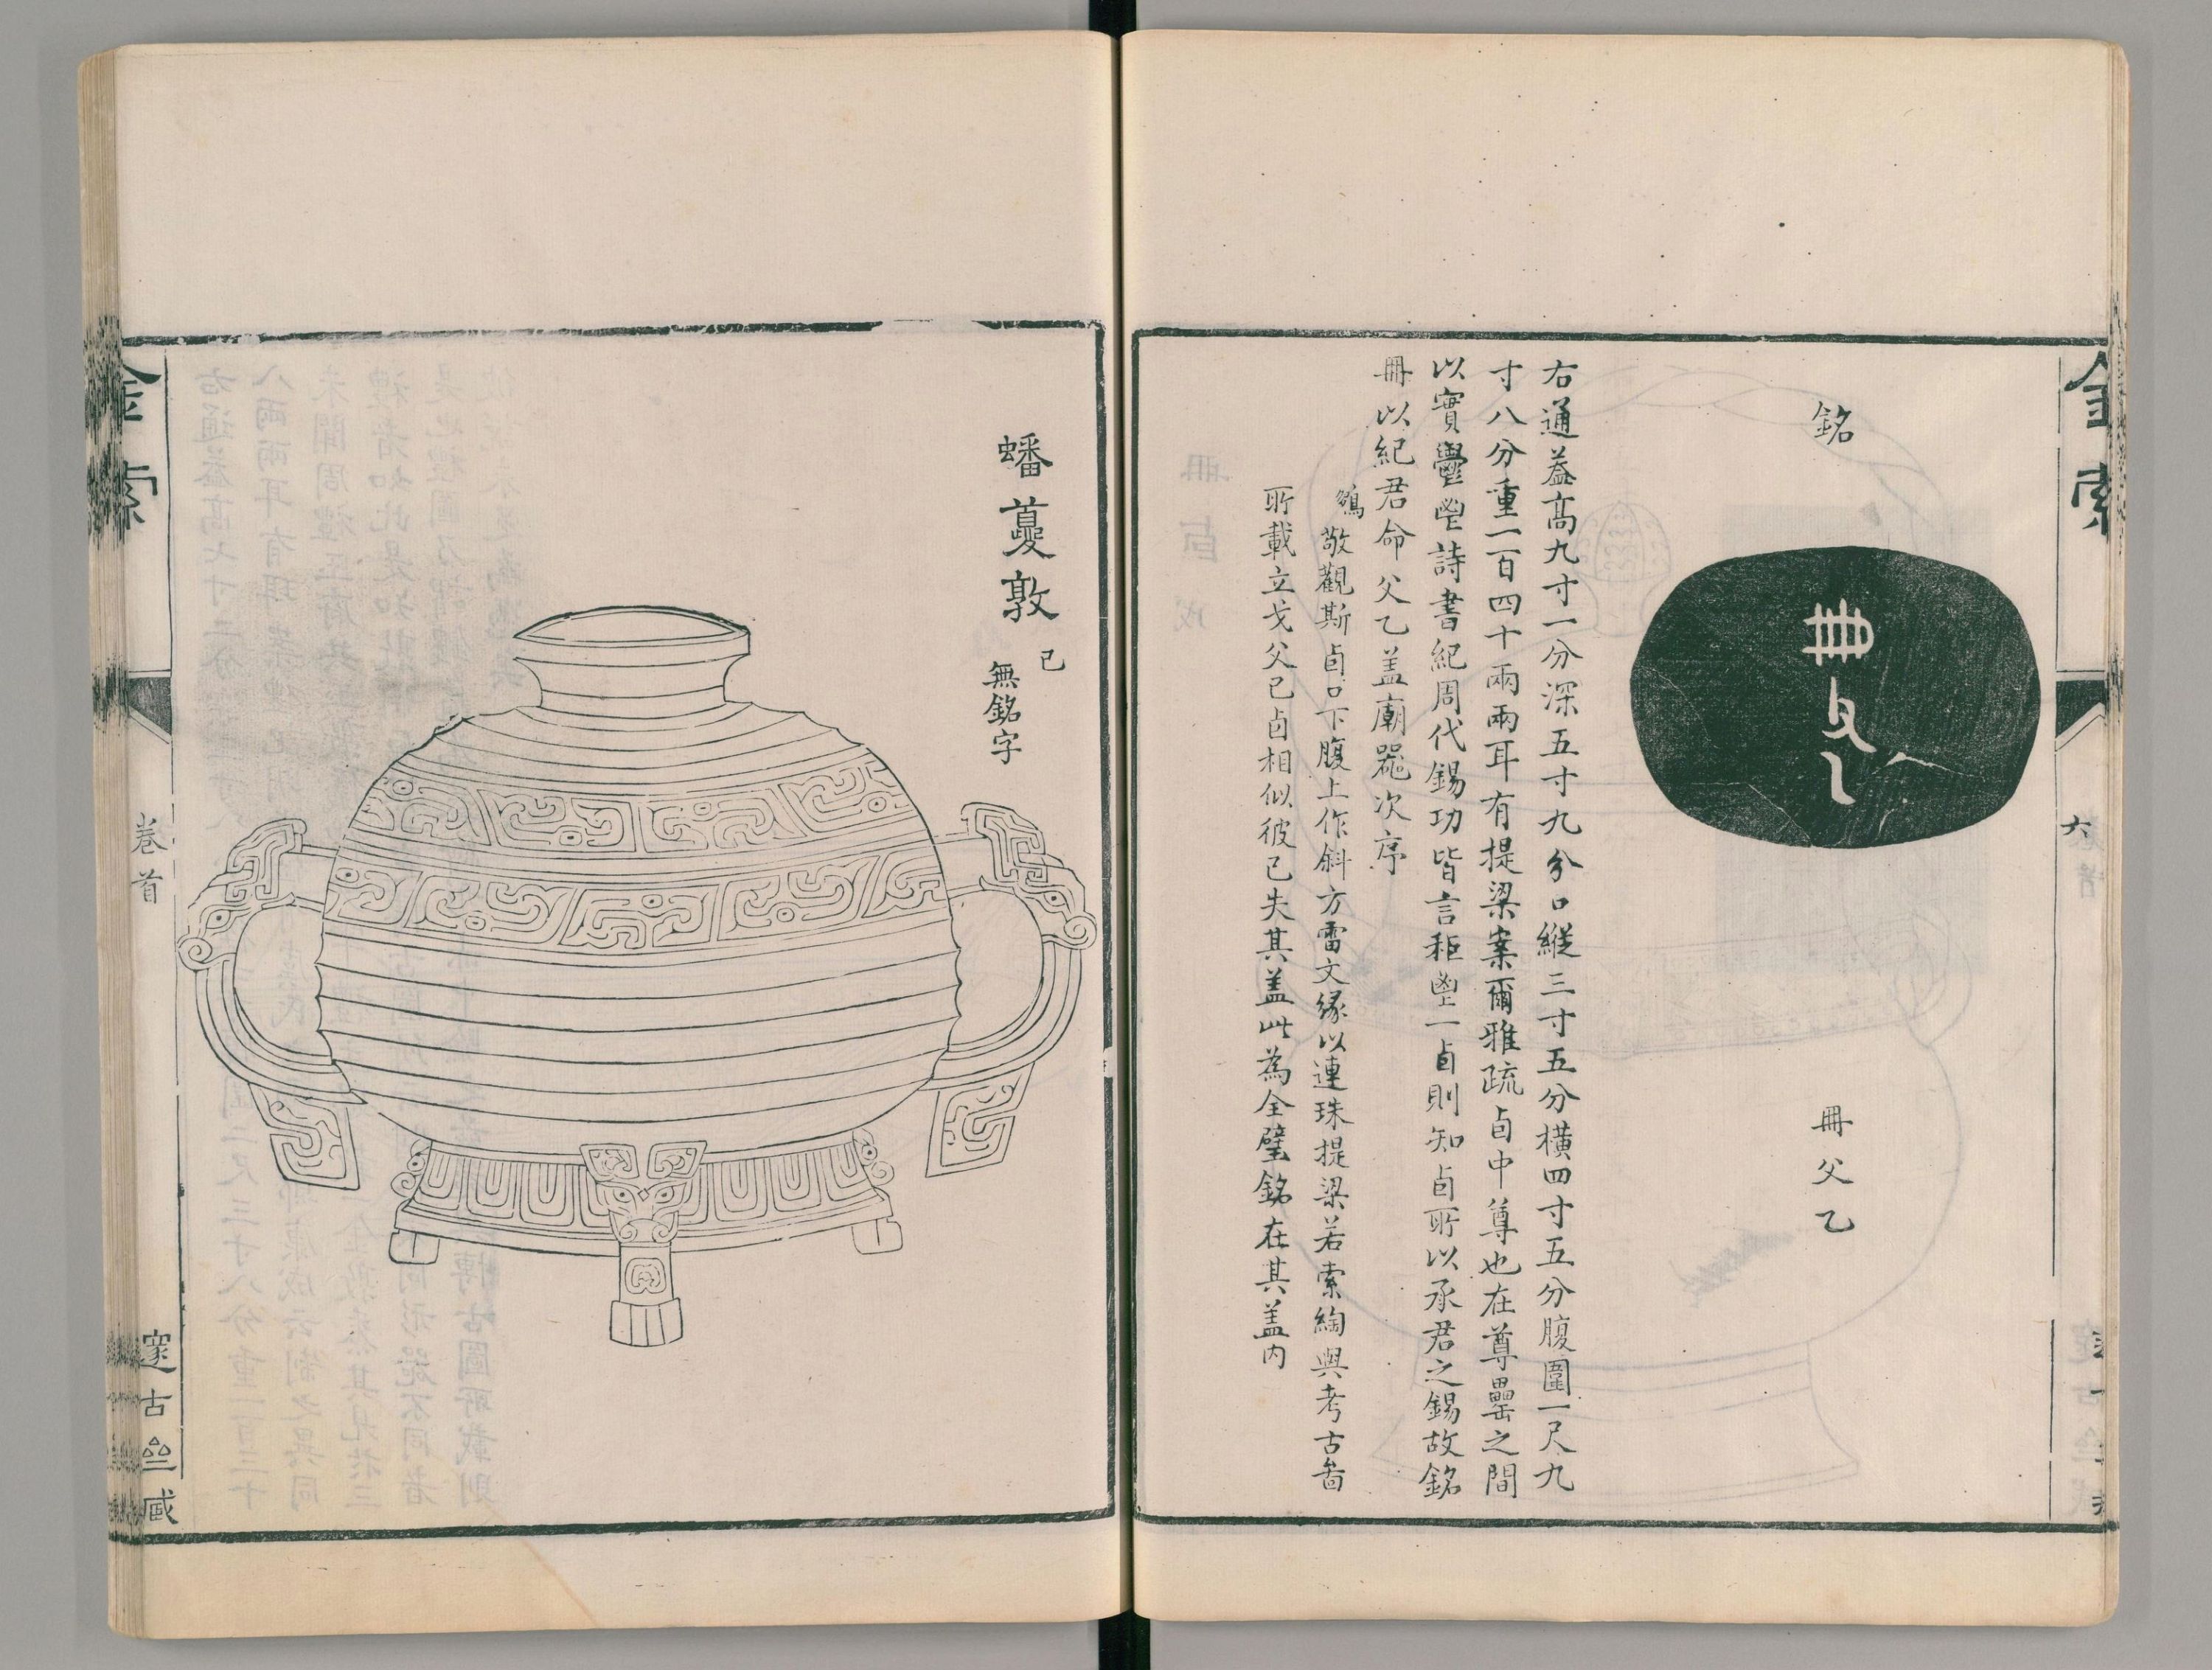 金索
六
銘
冊父乙
右通蓋高九寸一分深五寸九分口縱三寸五分橫四寸五分腹圍一尺九
寸八分重一百四十兩兩耳有提梁案爾雅疏卣中尊也在尊罍之間
以實鬱鬯詩書紀周代錫功皆言秬鬯一卣則知卣所以承君之錫故銘
冊以紀君命父乙蓋廟器次序
鵷敬觀斯卣口下腹上作斜方雷文緣以連珠提梁若索綯與考古啚
所載立戈父己卣相似彼已失其盖此為全璧銘在其盖內
蟠夔敦 己
無銘字
金索
卷首
邃古亝臧